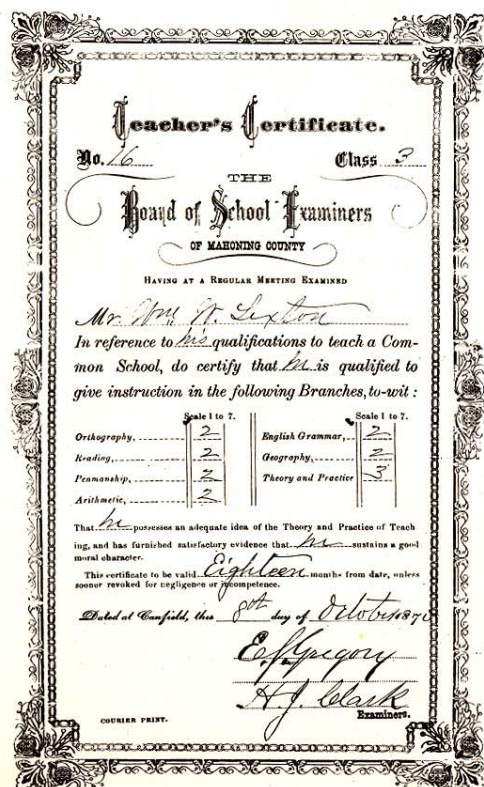 Teacher's Certificate.
No. 16 Class 3
THE
Board of School Examiners
OF MAHONING COUNTY
HAVING AT A REGULAR MEETING EXAMINED
Mr. Wm W. Sexton
In reference to his qualifications to teach a Com-
mon School, do certify that he is qualified to
give instruction in the following Branches, to-wit :
Scale 1 to 7. Scale 1 to 7.
Orthography, 2 English Grammar, 2
Reading, 2 Geography, 2
Penmanship, 2 Theory and Practice 3
Arithmetic, 2
That he possesses an adequate idea of the Theory and Practice of Teach
ing, and has furnished satisfactory evidence that he sustains a good
moral character.
This certificate to be valid Eighteen months from date, unless
sooner revoked for negligence or incompetence.
Dated at Canfield, this day of October
Gregory
H. J. Clark
COURIER PRINT. Examiners.